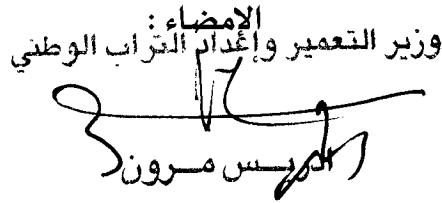 الإمضاء :
وزير التعمير وإعداد التراب الوطني
ادريس مرون